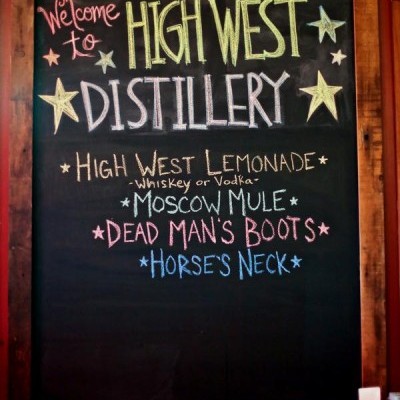 Welcome
to
HIGH WEST
DISTILLERY
HIGH WEST LEMONADE
-Whiskey or Vodka-
MOSCOW MULE
DEAD MAN'S BOOTS
HORSE'S NECK